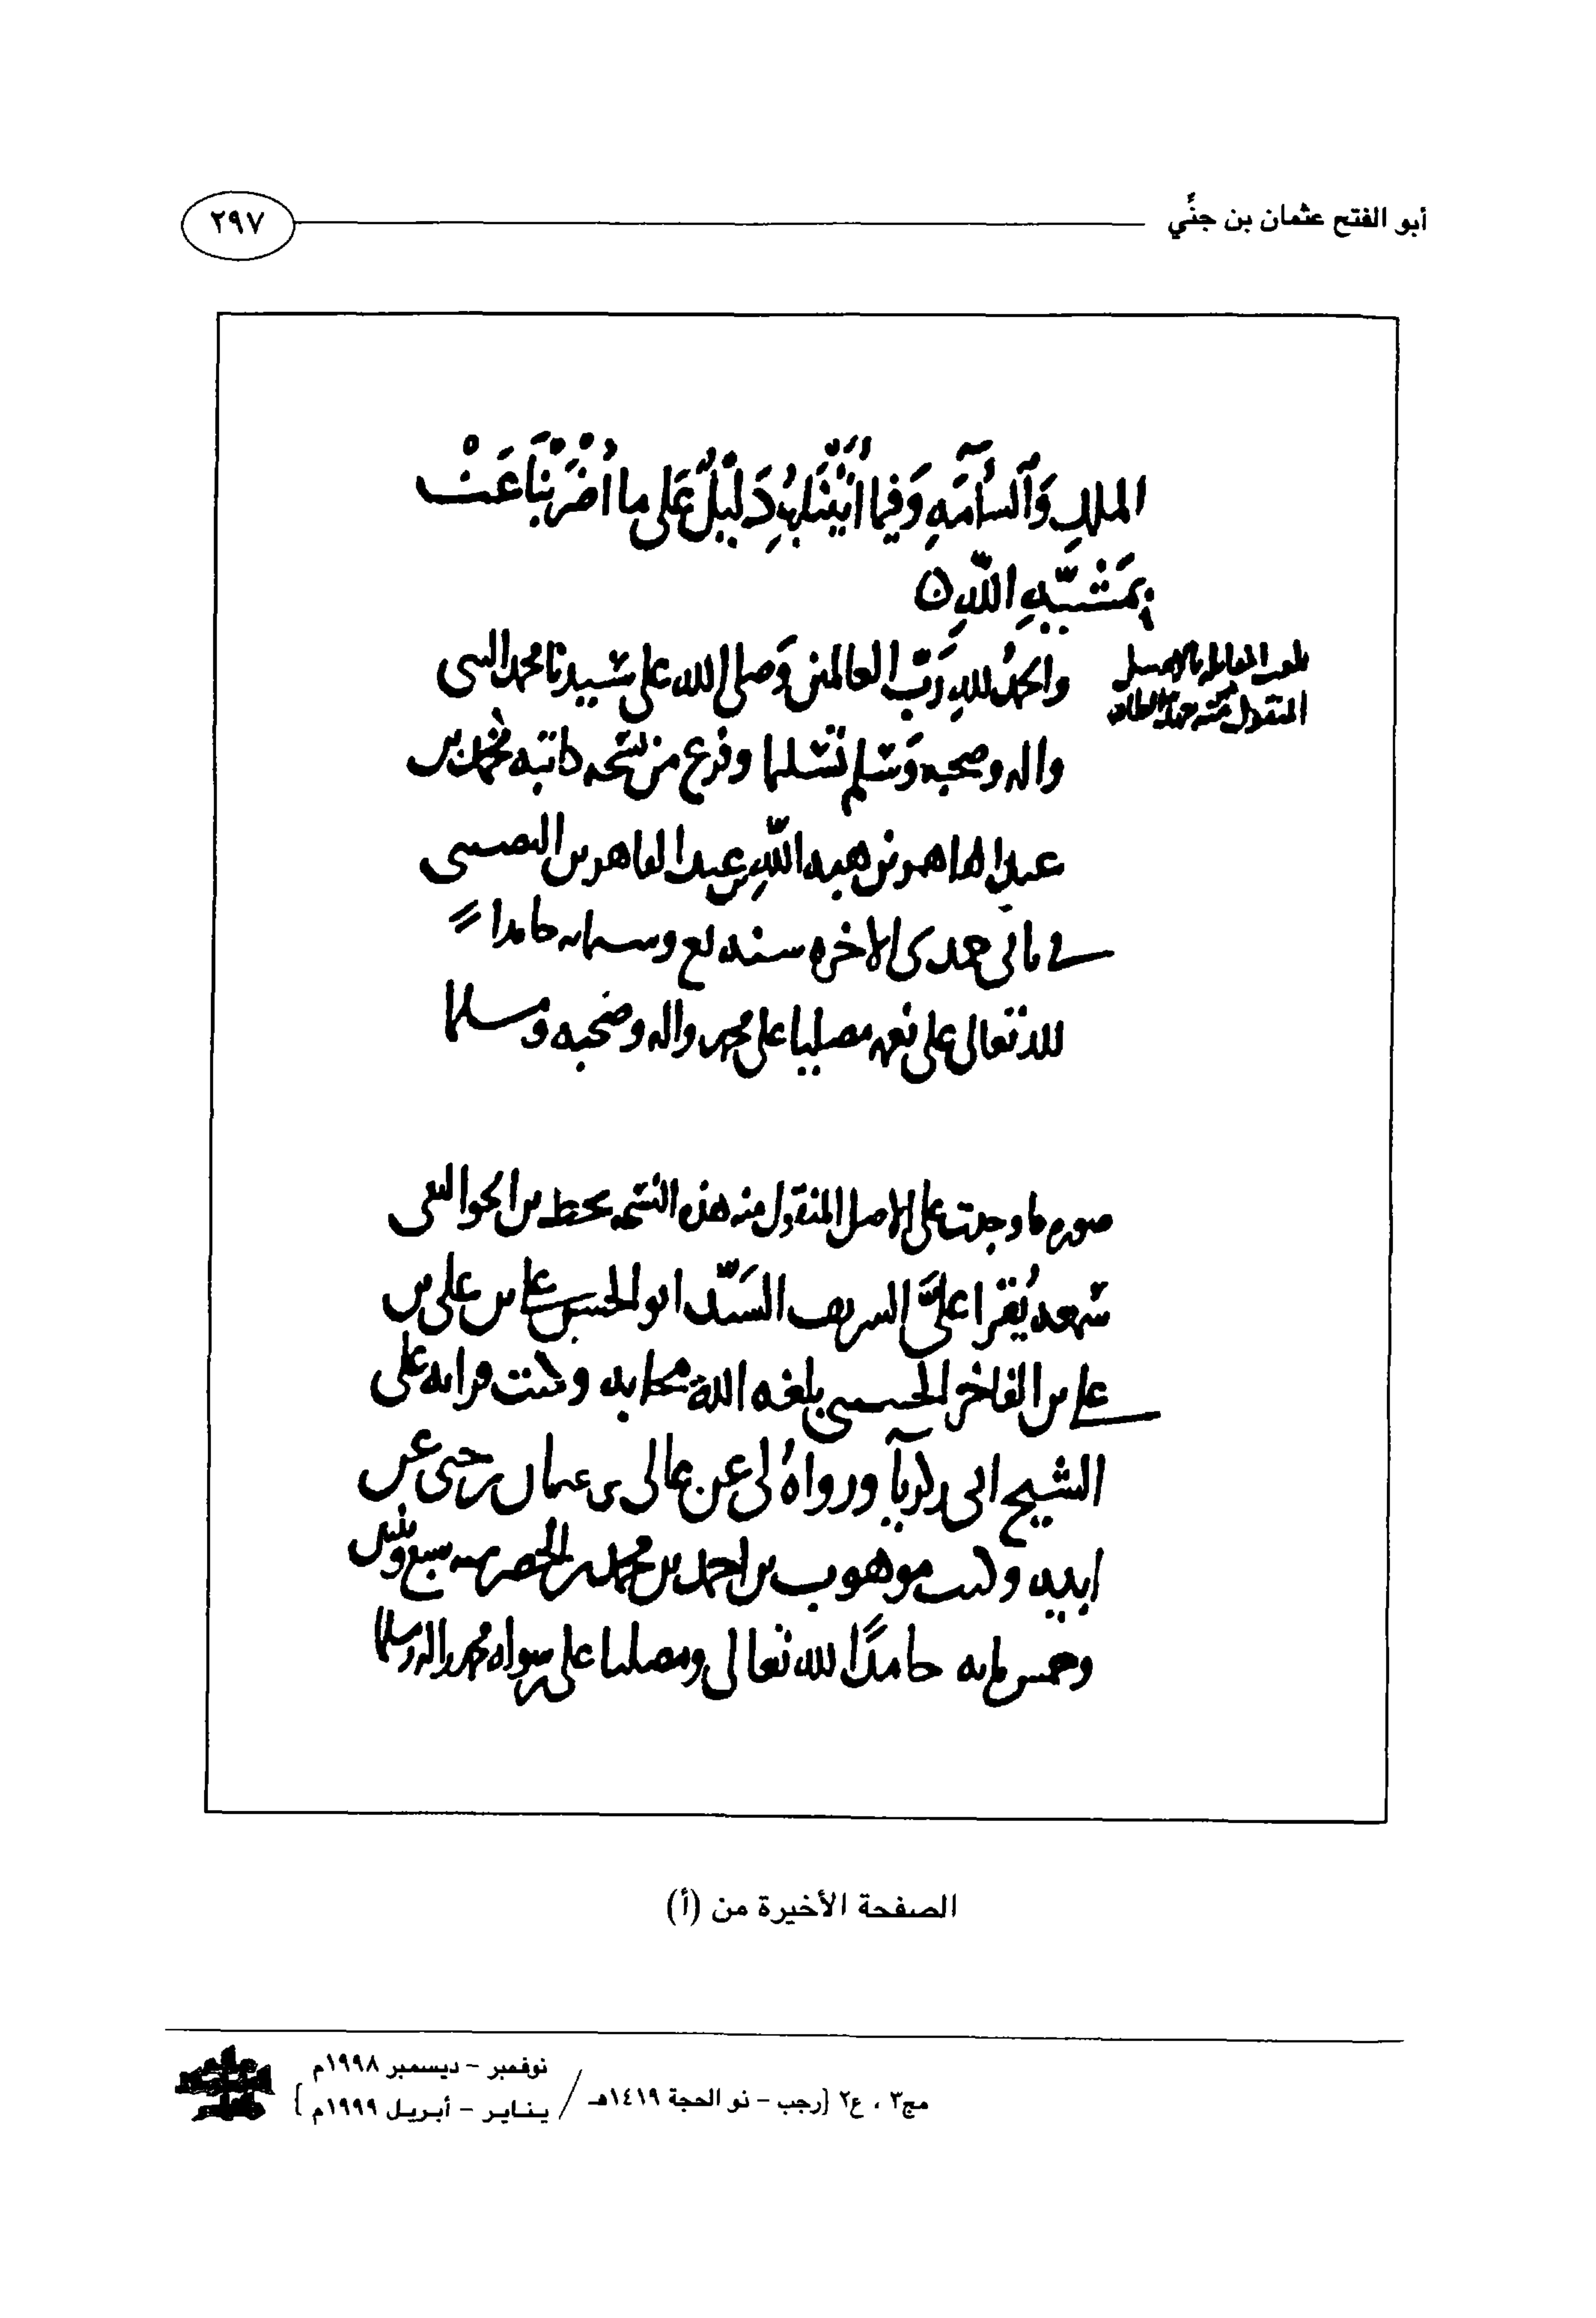 أبو الفتح عثمان بن جنِّي
٢٩٧
الملكِ وَٱلسآمَةِ وَفيما أَثْبَتْنَا بِهِ دَلِيْلٌ عَلى ما أَضْرَبْنَا عَنْهُ
بِمَشِيَّةِ اللّهِ ن
والحمدُ للهِ رَبّ العالمين وَصلى الله على سيدنا محمد النبى
واله وصحبه وَسلم تسليما وفرغ من نسخه كاتبه محمد بن
عبد القاهر بن هبة اللهِ بن عبد القاهر بن النصيبى
فى ثانى جمدى الاخره سنة وستمايه حامدا
لله تعالى على نعمه مصليا على محمد واله وصحبه ومسلما
بلغت المقابله بالاصل
المنقول منه
صورة ما وجدت على الاصل المنقول منه هذه النسخه بخط بن الجواليقى
سمعه يُقرا علىَّ الشريف السيّد ابو الحسن على بن على بن
على بن الفاخر الحسينى بلغه الله محابه وكنت قراته على
الشيخ ابى زكريآ ورواهُ لى عن عالى بن عثمان بن جنى عن
ابيه وكتب موهوب بن احمد بن محمد بن الخضر سنه سبع وثلثين
وخمس مايه حامدًا لله تعالى ومصليا على رسوله محمد واله ومسلما
الصفحة الأخيرة من (أ)
مج٣ ، ع٢ {رجب - ذو الحجة ١٤١٩هـ / نوفمبر - ديسمبر ١٩٩٨م
يناير - أبريل ١٩٩٩م}